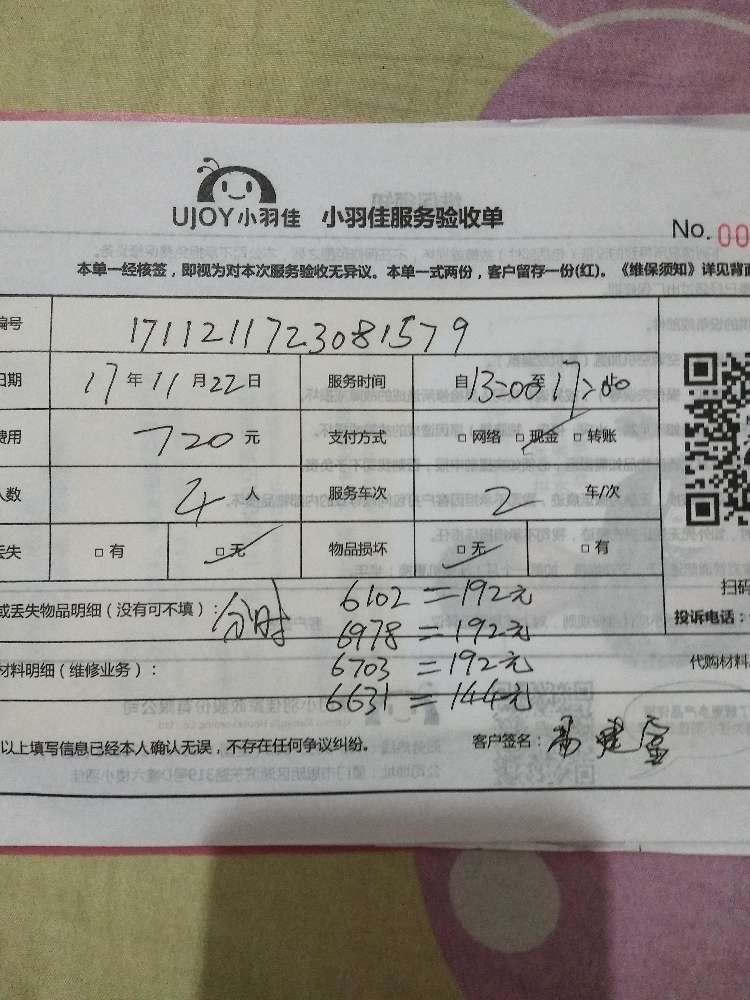 UJOY小羽佳 小羽佳服务验收单
No. 00
本单一经核签，即视为对本次服务验收无异议。本单一式两份，客户留存一份(红)。《维保须知》详见背面
编号 1711211723081579
日期 17年11月22日 服务时间 自13:00至17:00
费用 720元 支付方式 □网络 □现金 □转账
人数 4人 服务车次 2车/次
丢失 □有 □无 物品损坏 □无 □有
扫码
或丢失物品明细（没有可不填）： 分时 6102=192元
投诉电话：
6978=192元
材料明细（维修业务）： 6703=192元
代购材料
6631=144元
以上填写信息已经本人确认无误，不存在任何争议纠纷。 客户签名：